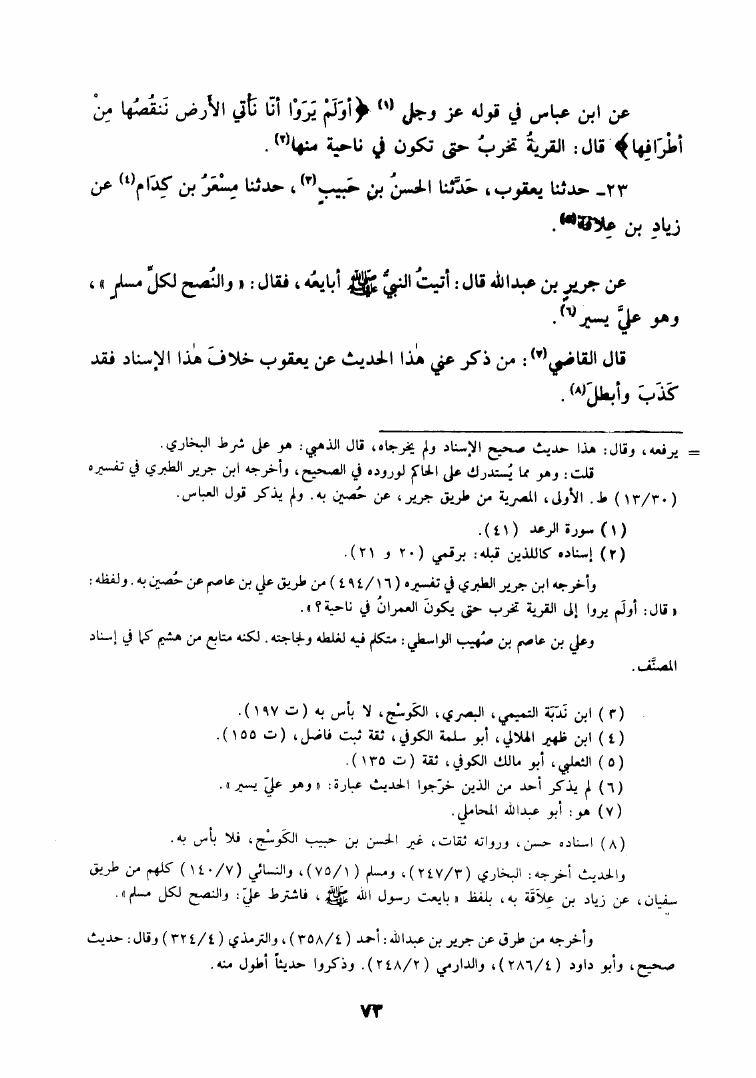 عن ابن عباس في قوله عز وجل (١) ﴿أَوَلَمْ يَرَوْا أنّا نَأتي الأَرض نَنقُصُها مِنْ
أطْرَافِها﴾ قال: القريةُ تخربُ حتى تكون في ناحية منها(٢).
٢٣ـ حدثنا يعقوب، حَدَّثنا الحسنُ بنِ حَبيبٍ(٣)، حدثنا مِسْعَرُ بن كِدَام(٤) عن
زيادِ بن عِلاقة(٥).
عن جريرٍ بن عبدالله قال: أتيتُ النبيَّ ﷺ أبايعُه، فقال: «والنُصح لكلِّ مسلمٍ»،
وهو عليَّ يسير(٦).
قال القاضي(٧): من ذكر عني هٰذا الحديث عن يعقوب خلافَ هٰذا الإسناد فقد
كَذَبَ وأبطلَ(٨).
= يرفعه، وقال: هذا حديث صحيح الإسناد ولم يخرجاه، قال الذهبي: هو على شرط البخاري.
قلت: وهو مما يُستدرك على الحاكم لوروده في الصحيح، وأخرجه ابن جرير الطبري في تفسيره
(١٣/٣٠) ط. الأولى، المصرية من طريق جرير، عن حُصين به. ولم يذكر قول العباس.
(١) سورة الرعد (٤١).
(٢) إسناده كاللذين قبله: برقمي (٢٠ و ٢١).
وأخرجه ابن جرير الطبري في تفسيره (٤٩٤/١٦) من طريق علي بن عاصم عن حُصين به. ولفظه:
«قال: أولَم يروا إلى القرية تخرب حتى يكونَ العمرانُ في ناحية؟».
وعلي بن عاصم بن صُهيب الواسطي: متكلم فيه لغلطه ولجاجته. لكنه متابع من هشيم كما في إسناد
المصنَّف.
(٣) ابن نَدَبَة التميمي، البصري، الكَوسْج، لا بأس به (ت ١٩٧).
(٤) ابن ظهير الهلالي، أبو سلمة الكوفي، ثقة ثبت فاضل، (ت ١٥٥).
(٥) الثعلبي، أبو مالك الكوفي، ثقة (ت ١٣٥).
(٦) لم يذكر أحد من الذين خرّجوا الحديث عبارة: «وهو عليّ يسير».
(٧) هو: أبو عبدالله المحاملي.
(٨) اسناده حسن، ورواته ثقات، غير الحسن بن حبيب الكَوسْج، فلا بأس به.
والحديث أخرجه: البخاري (٢٤٧/٣)، ومسلم (٧٥/١)، والنسائي (١٤٠/٧) كلهم من طريق
سفيان، عن زياد بن عِلَاقَة به، بلفظ «بايعت رسول الله ﷺ، فاشترط عليّ: والنصح لكل مسلم».
وأخرجه من طرق عن جرير بن عبدالله: أحمد (٣٥٨/٤)، والترمذي (٣٢٤/٤) وقال: حديث
صحيح، وأبو داود (٢٨٦/٤)، والدارمي (٢٤٨/٢). وذكروا حديثاً أطول منه.
٧٣